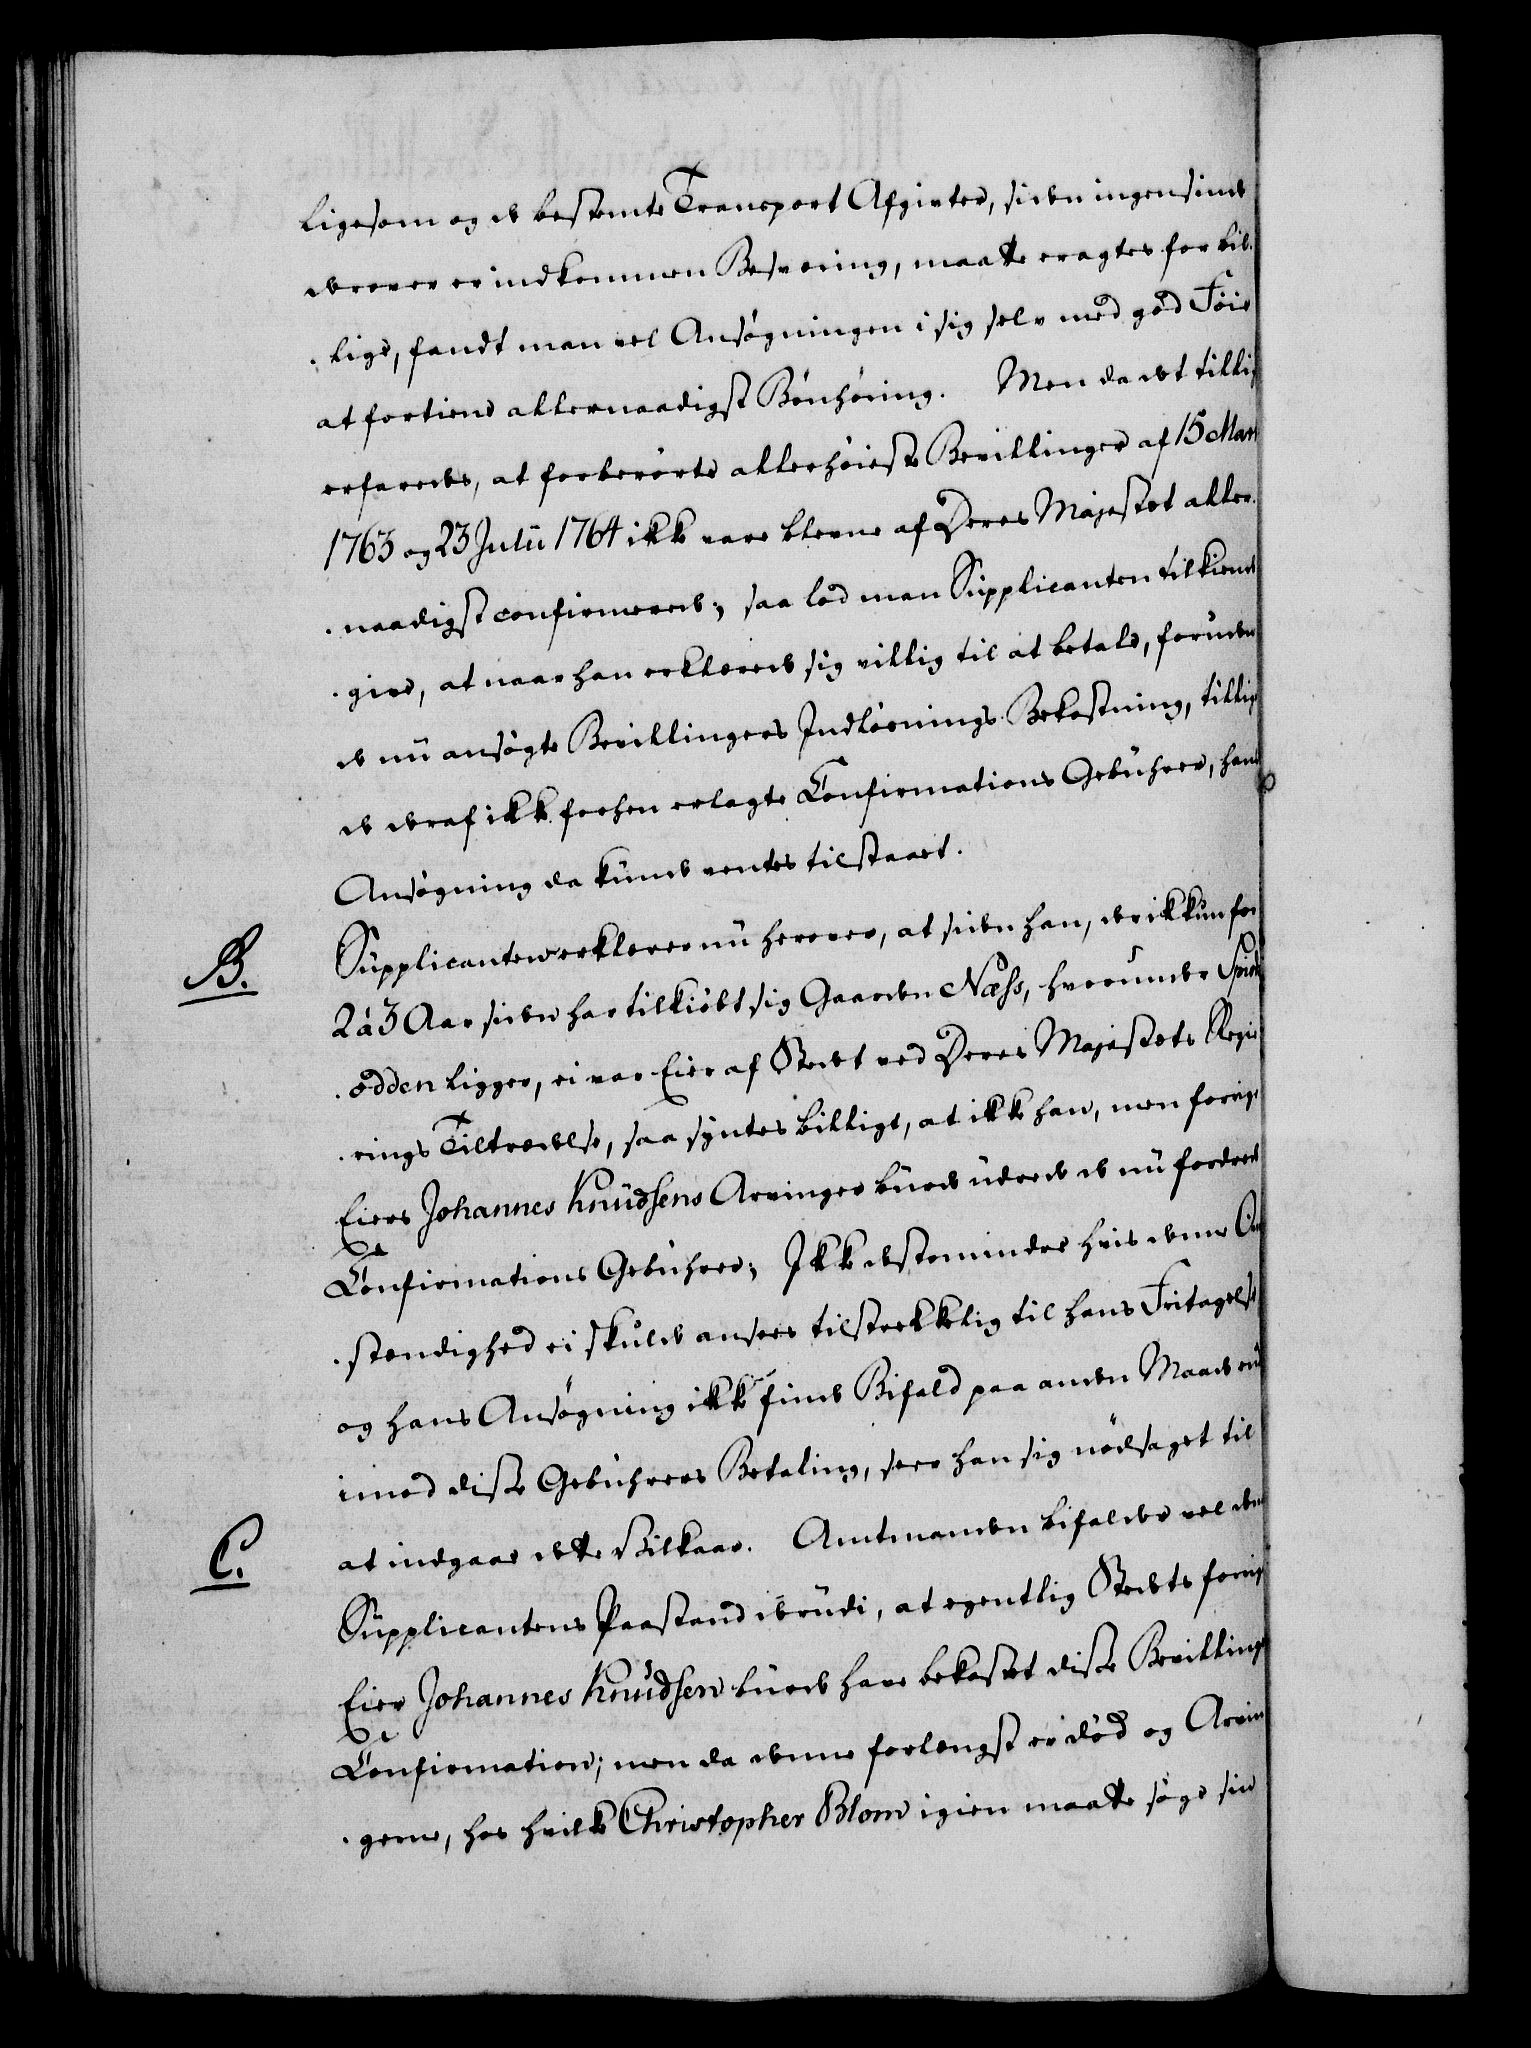 ligesom og de bestemte Transport Afgivter, siden ingensinde
derover er indkommen Besværing, maatte eragtes for bil¬
lige, fandt man vel Ansøgningen i sig selv med god Føie
at fortiene allernaadigst Bønhøring. Men da det tillig
erfaredes, at forberørte allerhøieste Bevillinger af 15 Mart
1763 og 23 Julii 1764 ikke vare blevne af Deres Majestæt aller¬
naadigst confirmerede; saa lod man Supplicanten tilkiende
give, at naar han erklærede sig villig til at betale, foruden
de nu ansøgte Bevillingers Indløsnings Bekostning, tillige
de deraf ikke forhen erlagte Confirmations Gebuhrer, hans
Ansøgning da kunde ventes tilstaaet.
B. Supplicanten erklærer nu herover, at siden han, der ikkun for
2 à 3 Aar siden har tilkiøbt sig Gaarden Næss, hvorunder
odden ligger, ei var Eier af Stedet ved Deres Majestæts Regie
rings Tiltrædelse, saa syntes billigt, at ikke han, men forrige
Eiers Johannes Knudsens Arvinger burde udrede de nu fordrede
Confirmations Gebuhrer; Ikke destomindre hvis denne Om
stændighed ei skulde ansees tilstrækkelig til hans Fritagelse
og hans Ansøgning ikke finde Bifald paa anden Maade end
imod disse Gebuhrers Betaling, seer han sig nødsaget til
C. at indgaae dette Vilkaar. Amtmanden bifalder vel den
Supplicantens Paastand derudi, at egentlig Stedets forrige
Eier Johannes Knudsen burde have bekostet disse Bevillingers
Confirmation; men da denne forlængst er død og Arvin
gerne, hos hvilke Christopher Blom igien maatte søge sin